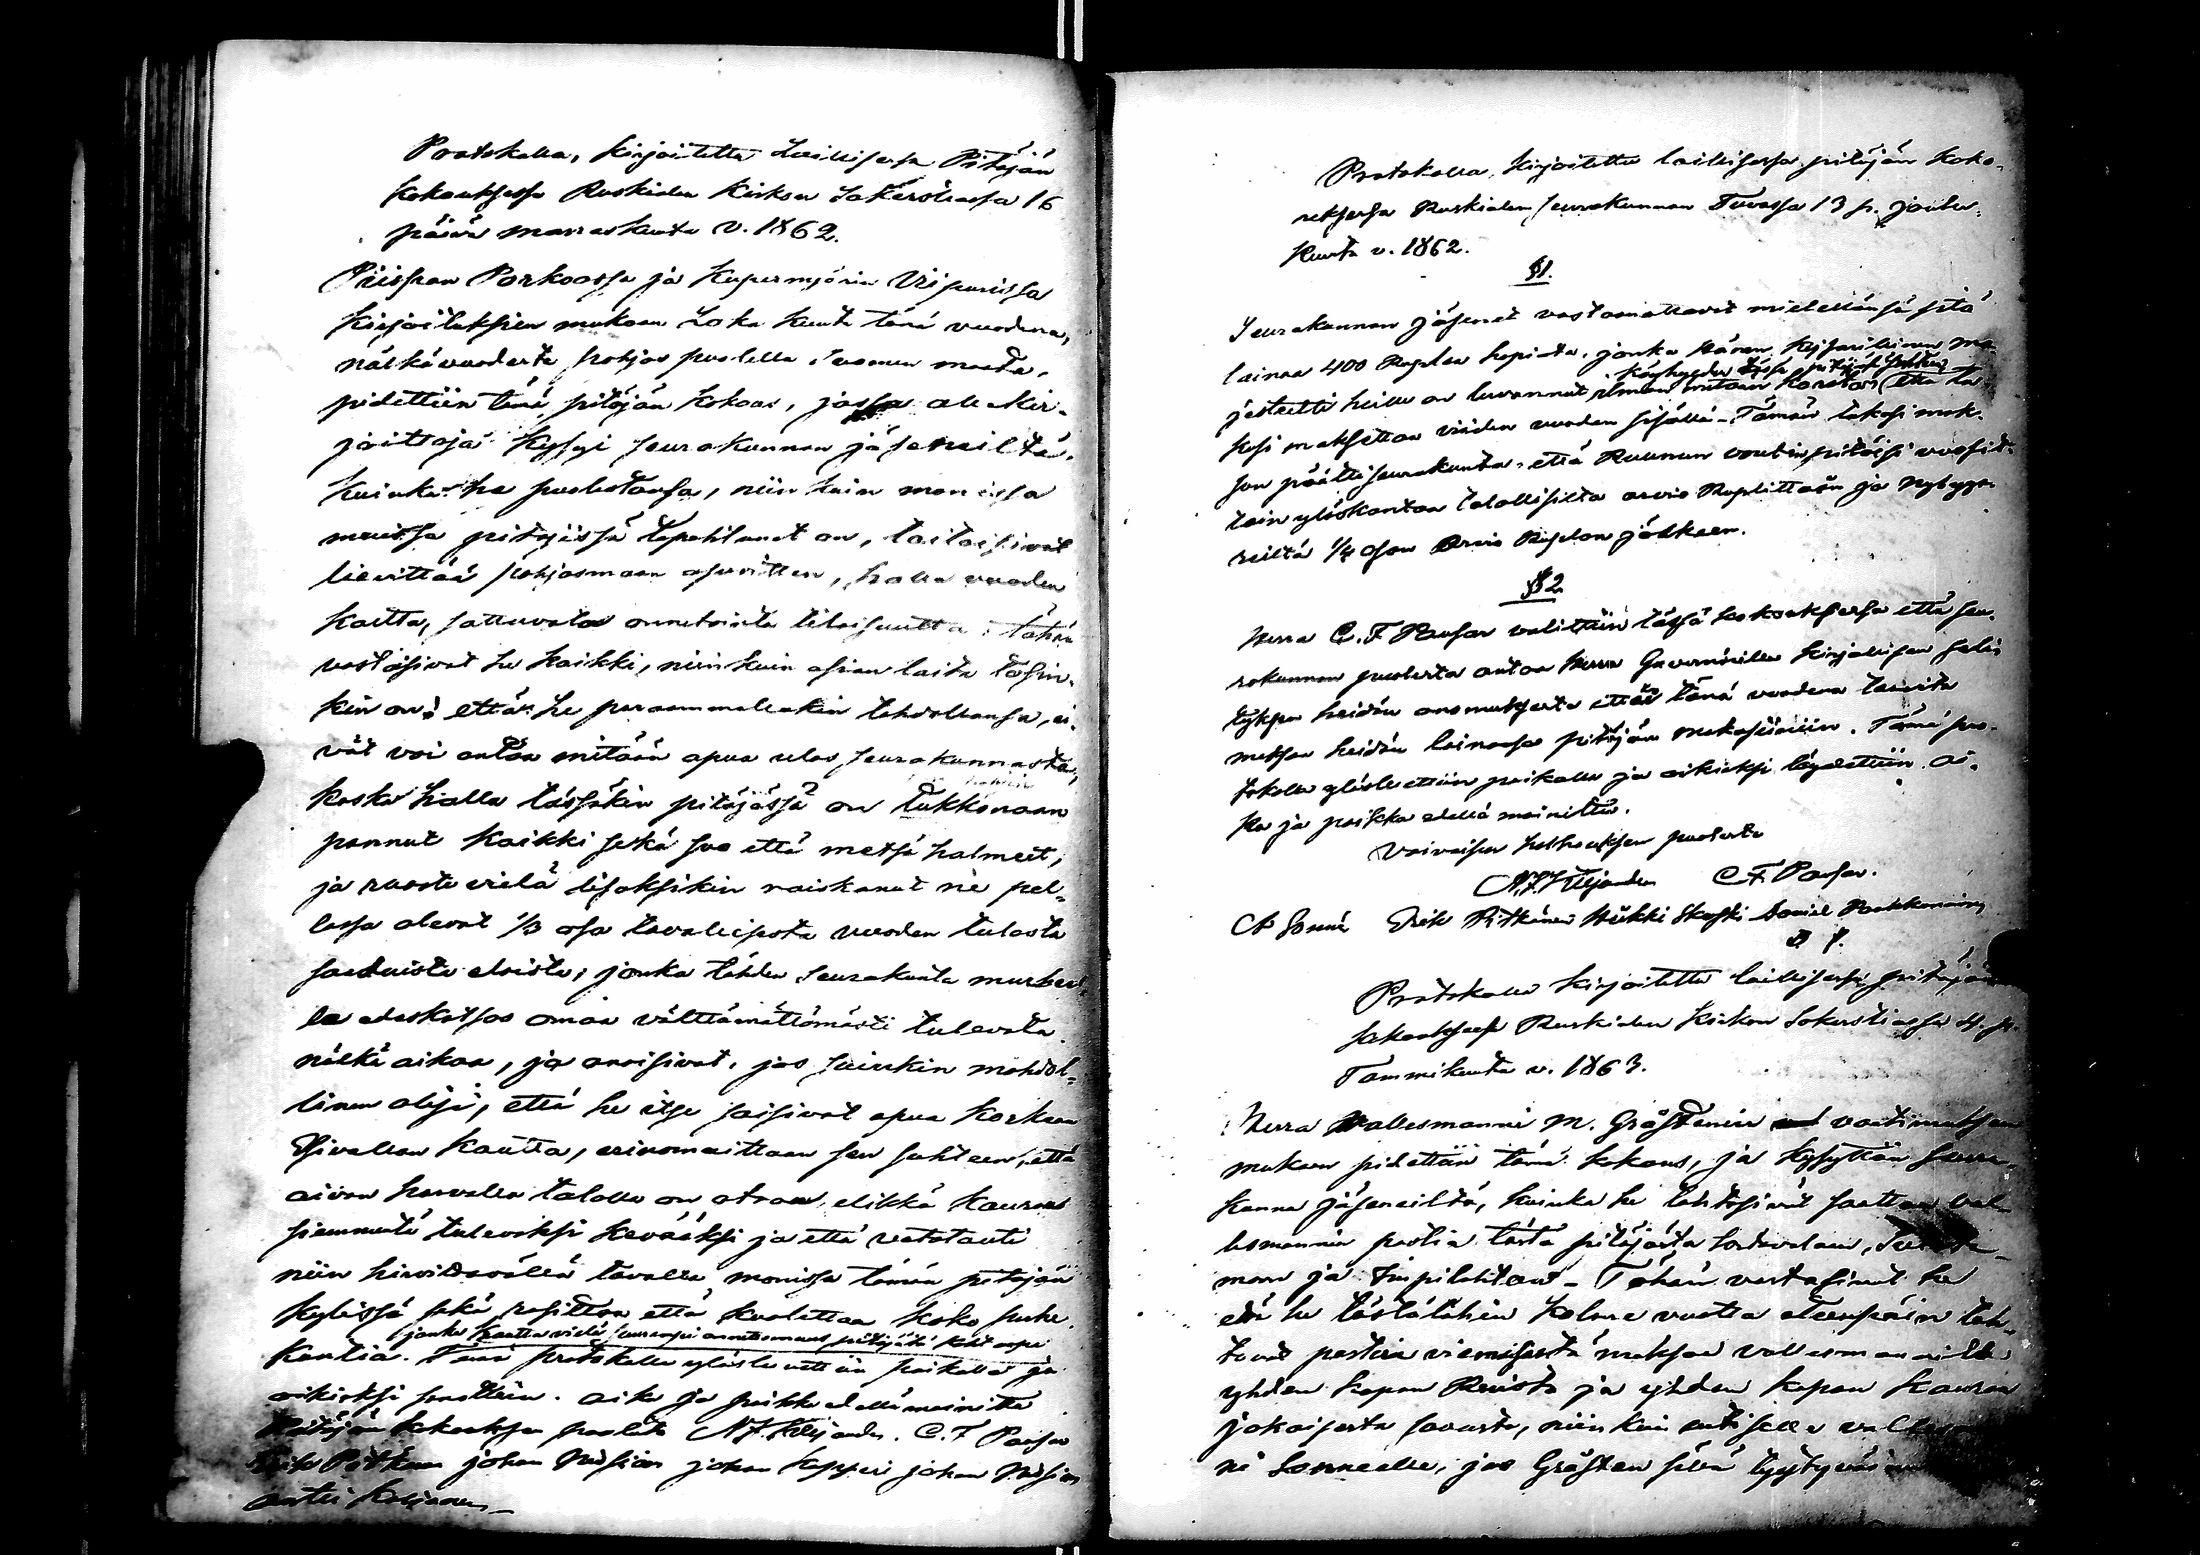 Protokolla, kirjoitettu Laillisessa Pitäjän
kokouksessa Ruskialan Kirkon Sakaristiassa 16
päivä marraskuuta v. 1862.
Piispan Porkoossa ja Kupernyörin Viipurissa
kirjoituksien mukaan Loka kuuta tänä vuodena,
nälkävuodesta pohjas puolella Suomen maata,
pidettiin tämä pitäjän kokous, jossa alle kir-
joittaja kysyi seurakunnan jäseneiltä,
kuinka he puolestansa, niin kuin monissa
muissa pitäjissä tapahtunut on, taitaisivat
lievittää pohjasmaan asuvitten, halla vuoden
kautta, sattuvata onnetointa tilaisuutta: tähän
vastaisivat he kaikki, niin kuin asian laita tosin-
kin on: että he parammallakin tahdollansa, ei-
vät voi antaa mitään apua ulos seurakunnasta,
koska halla tässäkin pitäjässä on tukkonaan
pannut kaikki sekä suo että metsä halmeet,
ja ruoste vielä lisäksikin raiskanut ne pel-
lossa olevat 1/3 osa tavallisesta vuoden tulosta
saaduista eloista, jonka tähden seurakunta murheel-
la edeskatsoo omaa välttämättömästi tulevata
nälkä aikaa, ja anoisivat, jos suinkin mahdol-
linen olisi, että he itse saisivat apua korkean
Esivallan kautta, erinomaittaan sen suhteen, että
aivan harvalla talolla on otraa, elikkä kauran
siemmentä tulevaksi kevääksi ja että vatatauti
niin hirvittävällä tavalla monissa tämän pitäjän
kylissä sekä rasittaa että kuolettaa koko perhe
jonka kautta vielä suurempi onnettomuus pitäjätä kohtaapi
kuntia. Tämä protokolla ylösluettiin paikalla ja
oikiaksi sanottiin. aika ja paikka edellämainittu
Pitäjän kokouksen puolesta N. J. Kiljander. C. F. Paufar
Erik Pitkänen johan Näsiäin johan Kopperi johan Näsiäin
antti Karjanen
Protokolla, kirjoitettu laillisessa pitäjän koko-
uksessa Ruskialan seurakunnan Tuvassa 13 p. joulu-
kuuta v. 1862.
§1.
Seurakunnan jäsenet vastaanottavat mielellänsä sitä
lainaa 400 Ruplaa hopiata, jonka Hänen Keisarillinen Ma-
köyhyyden tässä pitäjässä tähden
jesteetti heille on luvannut ilman mitään korotta, että ta-
kasi maksettaa viiden vuoden sisällä. Tämän takasi mak-
son päätti seurakunta, että Ruunun voudin pitäisi vuosit-
tain ylöskantaa talollisilta arvio Ruplittain ja Nybygga-
reiltä 1/4 osan Arvio Ruplan jälkeen.
§2
Herra C. F. Paufar valittiin tässä kokouksessa että seu-
rakunnan puolesta antaa herra Guvernörille kirjallisen seli-
tyksen heidän anomuksesta että tänä vuodena
maksaa heidän lainaasa pitäjän makasiiniin. Tämä pro-
tokolla ylösluettiin paikalla ja oikiaksi löydettiin. ai-
ka ja paikka edellä mainittu.
Vaivaisen holhouksen puolesta
N. J. Kiljander C. F. Paufar.
Erik Pitkänen Heikki Daniel Pakkanainen
Protokolla kirjoitettu laillisessa pitäjän
kokouksessa Ruskialan Kirkon Sakaristiassa 4. p.
Tammikuuta v. 1863.
Herra Vallesmanni M. Gråsténin vaatimuksen
mukaan pidettiin tämä kokous, ja kysyttiin seura-
kunna jäseneiltä, kuinka he tahtosivat saattaa val-
lesmannin postia tästä pitäjästä Sordavalaan,
maan ja Impilahteen. Tähän vastasivat he
että he tästälähin kolme vuotta eteenpäin tah-
tovat postin viemisestä maksaa vallesmannille
yhden kapan Ruista ja yhden kapan kauroa
jokaisesta savusta, niin kuin entiselle
ni Sonneelle, jos Gråsten siinä